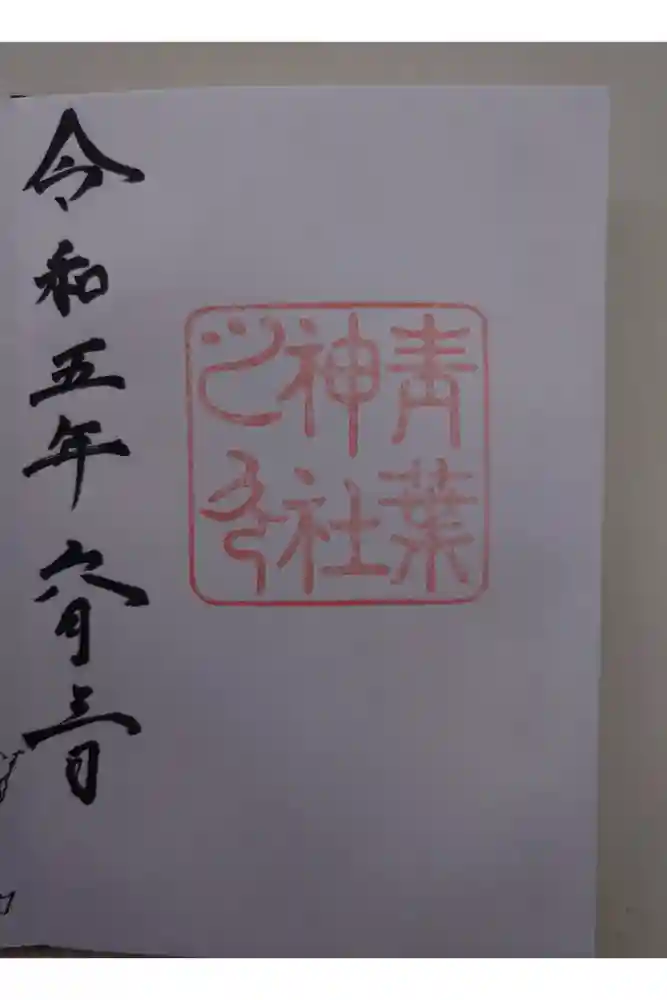 青葉
神社
之印
令和五年六月三日